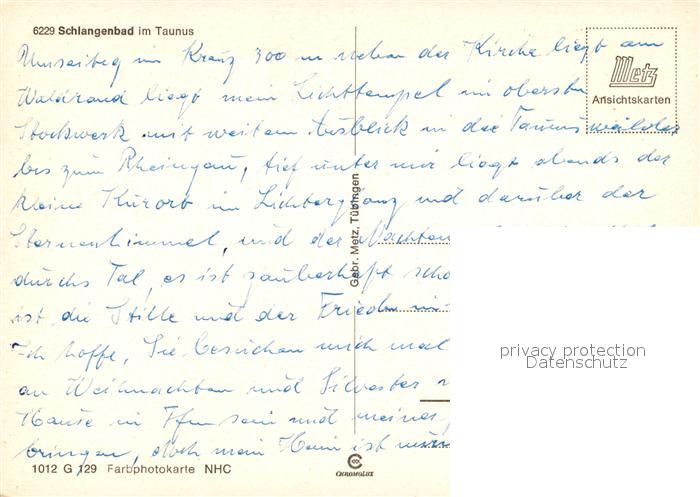 6229 Schlangenbad im Taunus
Umseitig im Kreuz 300 m neben der Kirche liegt am
Waldrand liegt mein Lichttempel im obersten
Stockwerk mit weitem Ausblick in die Taunuswälder
bis zum Rheingau, tief unter mir liegt abends der
kleine Kurort im Lichterglanz und darüber der
Sternenhimmel, und der
durchs Tal, es ist zauberhaft
ist die Stille und der Frieden
Ich hoffe, Sie besuchen mich mal
an Weihnachten und Silvester
Hause in Ffm sein und meine
bringen, doch mein Heim ist
Metz
Ansichtskarten
Gebr. Metz, Tübingen
privacy protection
Datenschutz
1012 G 129 Farbphotokarte NHC
CHROMOLUX